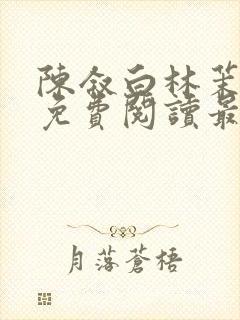 陳叙白林茉
免費閱讀最
月落蒼梧